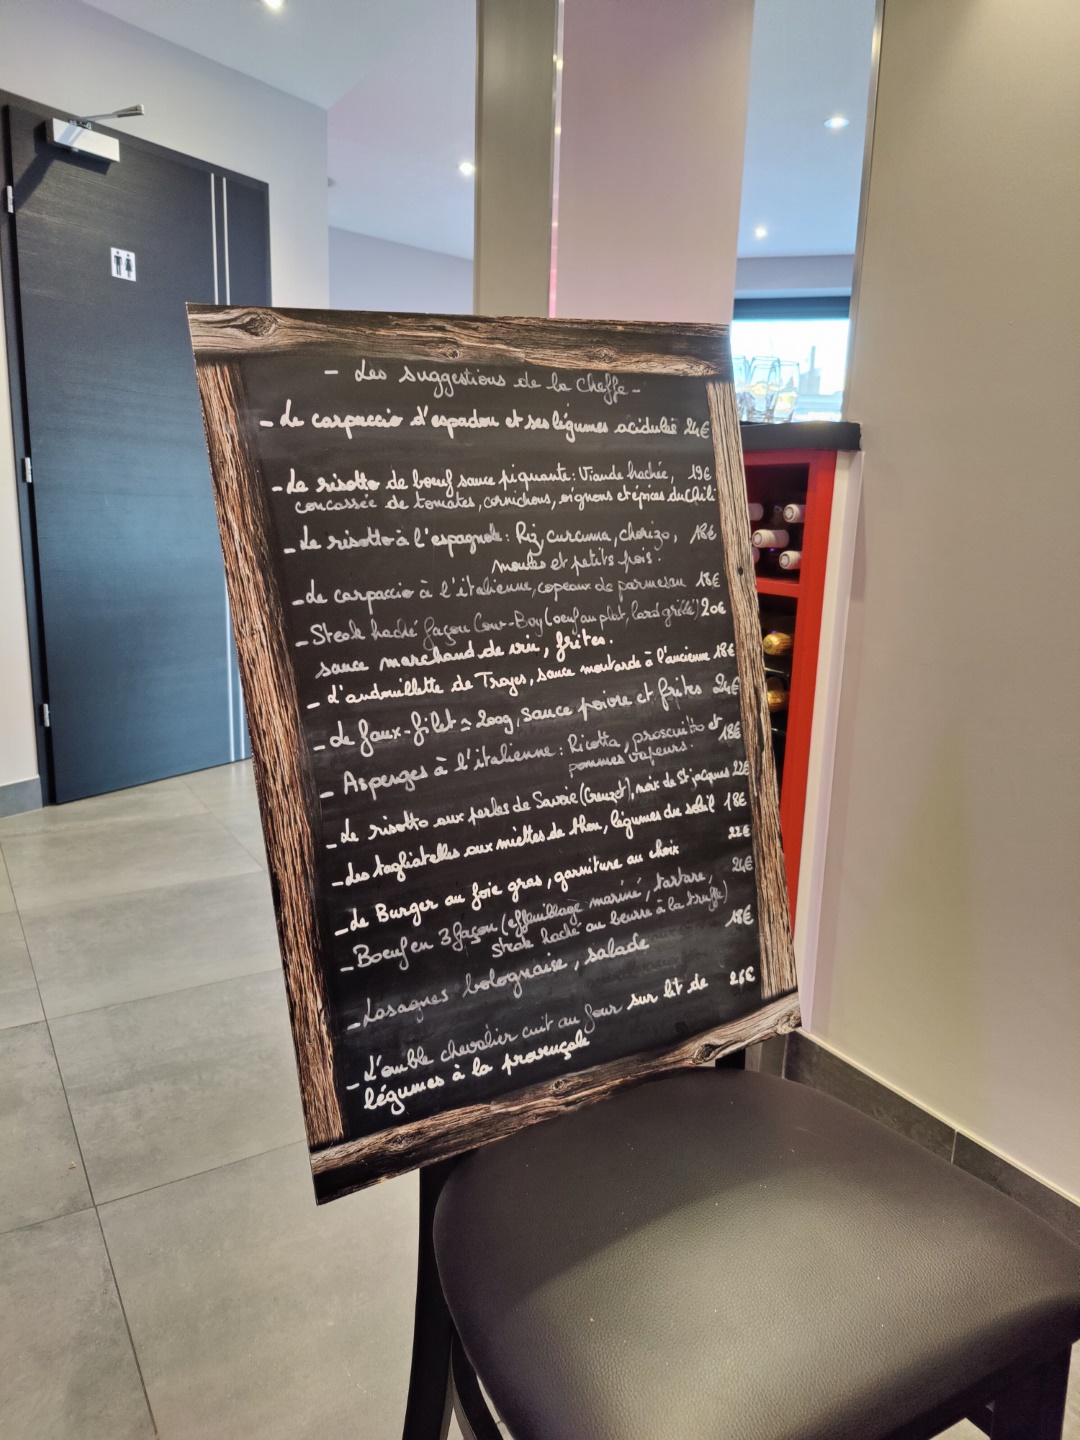 - Les suggestions de la Cheffe -
- Le carpaccio d'espadon et ses légumes acidulés 24€
- Le risotto de bœuf sauce piquante : Viande hachée, 19€
concassée de tomates, cornichons, oignons et épices du Chili
- Le risotto à l'espagnole : Riz, curcuma, chorizo, 18€
moules et petits pois.
- Le carpaccio à l'italienne, copeaux de parmesan 18€
- Steak haché façon Cow-Boy (oeuf au plat, lard grillé) 20€
sauce marchand de vin, frites.
- L'andouillette de Troyes, sauce moutarde à l'ancienne 18€
- Le faux-filet ≃ 200g, sauce poivre et frites 24€
- Asperges à l'italienne : Ricotta, proscuitto et 18€
pommes vapeurs.
- Le risotto aux perles de Savoie (Crouzet), noix de St jacques 22€
- Les tagliatelles aux miettes de thon, légumes du soleil 18€
- Le Burger au foie gras, garniture au choix 22€
- Boeuf en 3 façon (effeuillage mariné, tartare, 24€
steak haché au beurre à la truffe)
- Lasagnes bolognaise, salade 18€
- L'omble chevalier cuit au four sur lit de 26€
légumes à la provençale